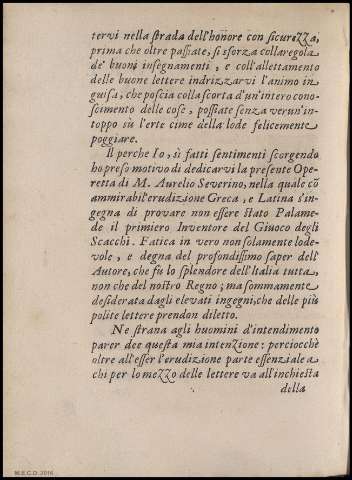 tervi nella strada dell'honore con sicurezza,
prima che oltre passiate, si sforza colla regola
de' buoni insegnamenti, e coll'allettamento
delle buone lettere indrizzarvi l'animo in
guisa, che poscia colla scorta d'un'intero cono-
scimento delle cose, possiate senza verun'in-
toppo sù l'erte cime della lode felicemente
poggiare.
Il perche Io, sì fatti sentimenti scorgendo
ho preso motivo di dedicarvi la presente Ope-
retta di M. Aurelio Severino, nella quale cõ
ammirabil'erudizione Greca, e Latina s'in-
gegna di provare non essere stato Palame-
de il primiero Inventore del Giuoco degli
Scacchi. Fatica in vero non solamente lode-
vole, e degna del profondissimo saper dell'
Autore, che fu lo splendore dell'Italia tutta
non che del nostro Regno; ma sommamente
desiderata dagli elevati ingegni, che delle più
polite lettere prendon diletto.
Ne strana agli huomini d'intendimento
parer dee questa mia intenzione: perciocchè
oltre all'esser l'erudizione parte essenziale a
chi per lo mezzo delle lettere va all'inchiesta
della
M.E.C.D. 2016